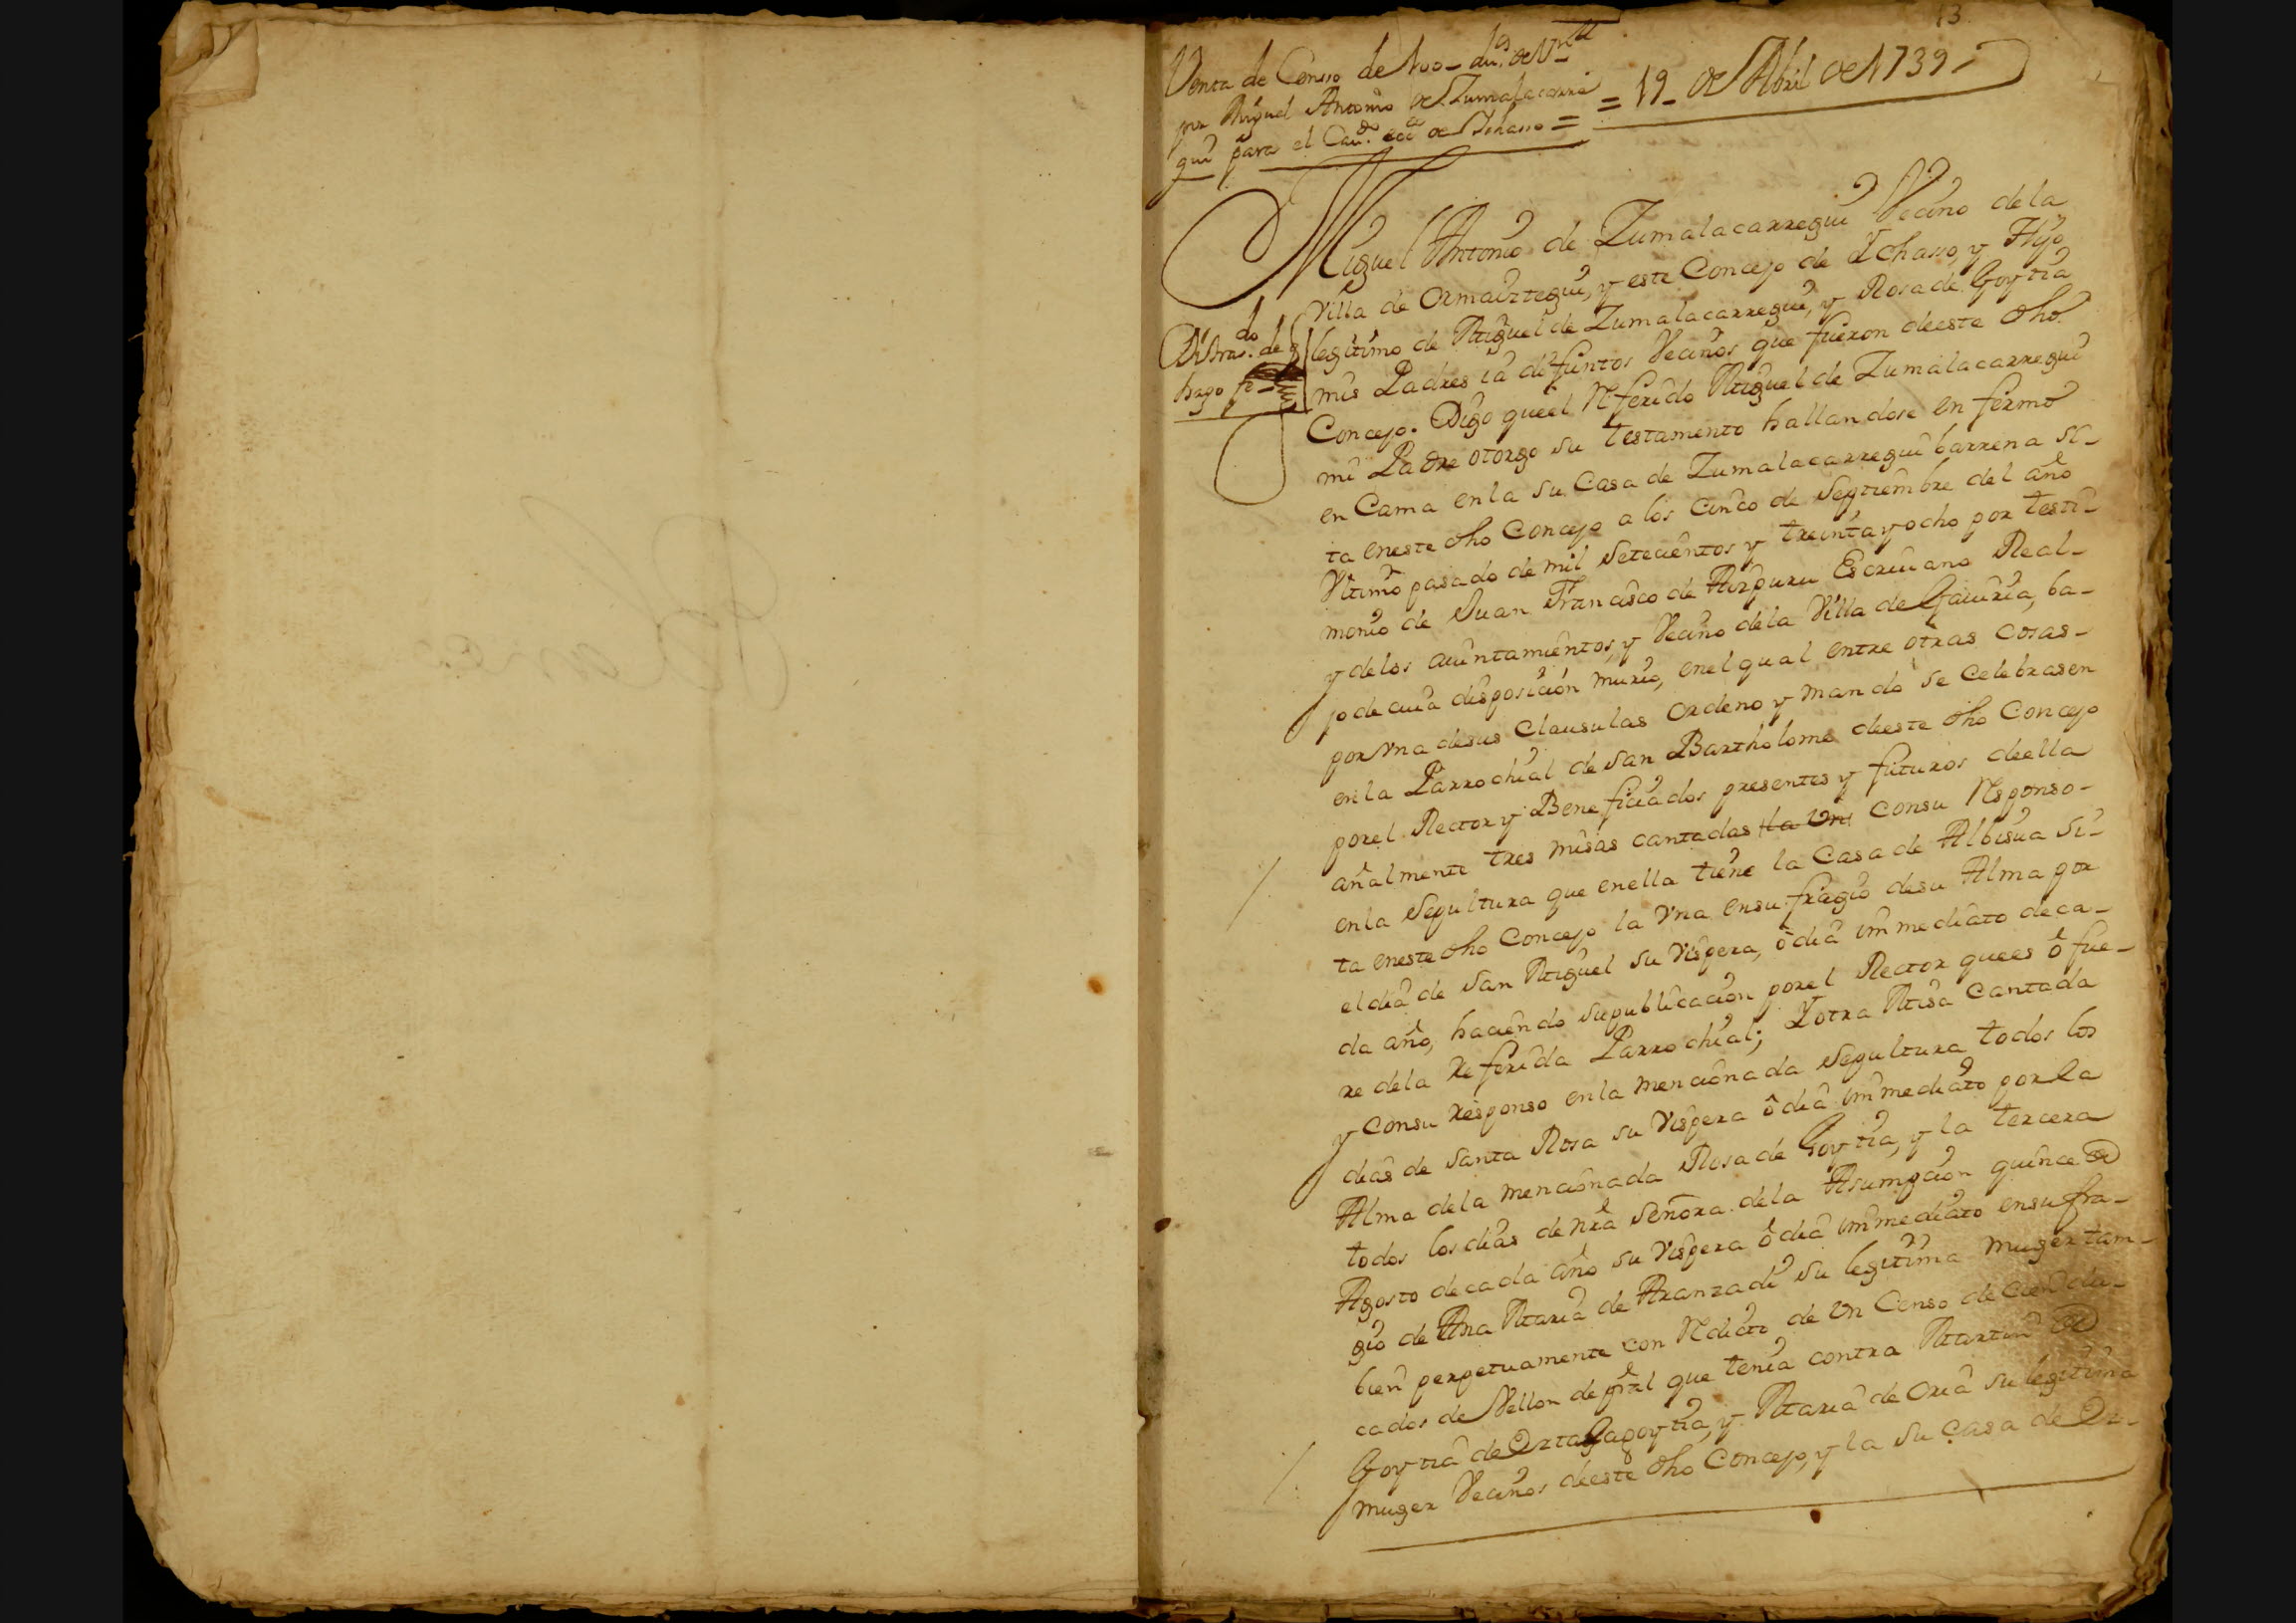 13
Venta de Censso de 100 – du.os de V.on
por Miguel Antonio de Zumalacarre
gui para el Cau.do ecc.co de Ichasso =
= 19 – de Abril de 1739 –
Miguel Antonio de Zumalacarregui Vecino de la
Villa de Ormaiztegui, y este Concejo de Ychasso, y Hijo
legitimo de Miguel de Zumalacarregui, y Rosa de Goytia
mis Padres ia difuntos Vecinos que fueron deeste dho
Concejo. Digo queel Referido Miguel de Zumalacarregui
mi Padre otorgo su testamento hallandose enfermo
en Cama enla su Casa de Zumalacarregui barrena si-
ta eneste dho Concejo a los Cinco de Septiembre del año
Vltimo pasado de mil Setecientos y treinta y ocho por testi-
monio de Juan Francisco de Aizpuru Escriuano Real –
y delos aiuntamientos, y Vecino dela Villa de Gauiria, ba-
jo de cuia disposicion murio, enel qual entre otras cosas –
por Vna desus Clausulas Ordeno y mando se Celebrasen
enla Parrochial de San Bartholome deeste dho Concejo
porel Rector y Beneficiados presentes y futuros deella
añalmente tres misas cantadas la Vn consu Responso –
enla Sepultura que enella tiene la Casa de Albisua Si-
ta eneste dho Concejo la Vna ensufragio desu Alma por
eldia de San Miguel su Vispera, ò dia immediato deca-
da año, haciendo supublicacion porel Rector quees ò fue-
re dela Referida Parrochial; Y otra Misa Cantada
y Consu Responso enla mencionada Sepultura todos los
dias de Santa Rosa su Vispera ò dia immediato por la
Alma dela mencionada Rosa de Goytia, y la tercera
todos los dias de nrã Señora dela Asumpcion quince de
Agosto decada año su Vispera ò dia immediato ensufra-
gio de Ana Maria de Aranzadi su legitima muger tam-
bien perpetuamente con Redito de Un Censo de Cien du-
cados de Vellon de prãl que tenia contra Martin de
Goytia de Iztagagoytia, y Maria de Oria su legitima
muger Vecinos deeste dho Concejo, y la su Casa de Iz-
Di tras.do de q
hago fe –